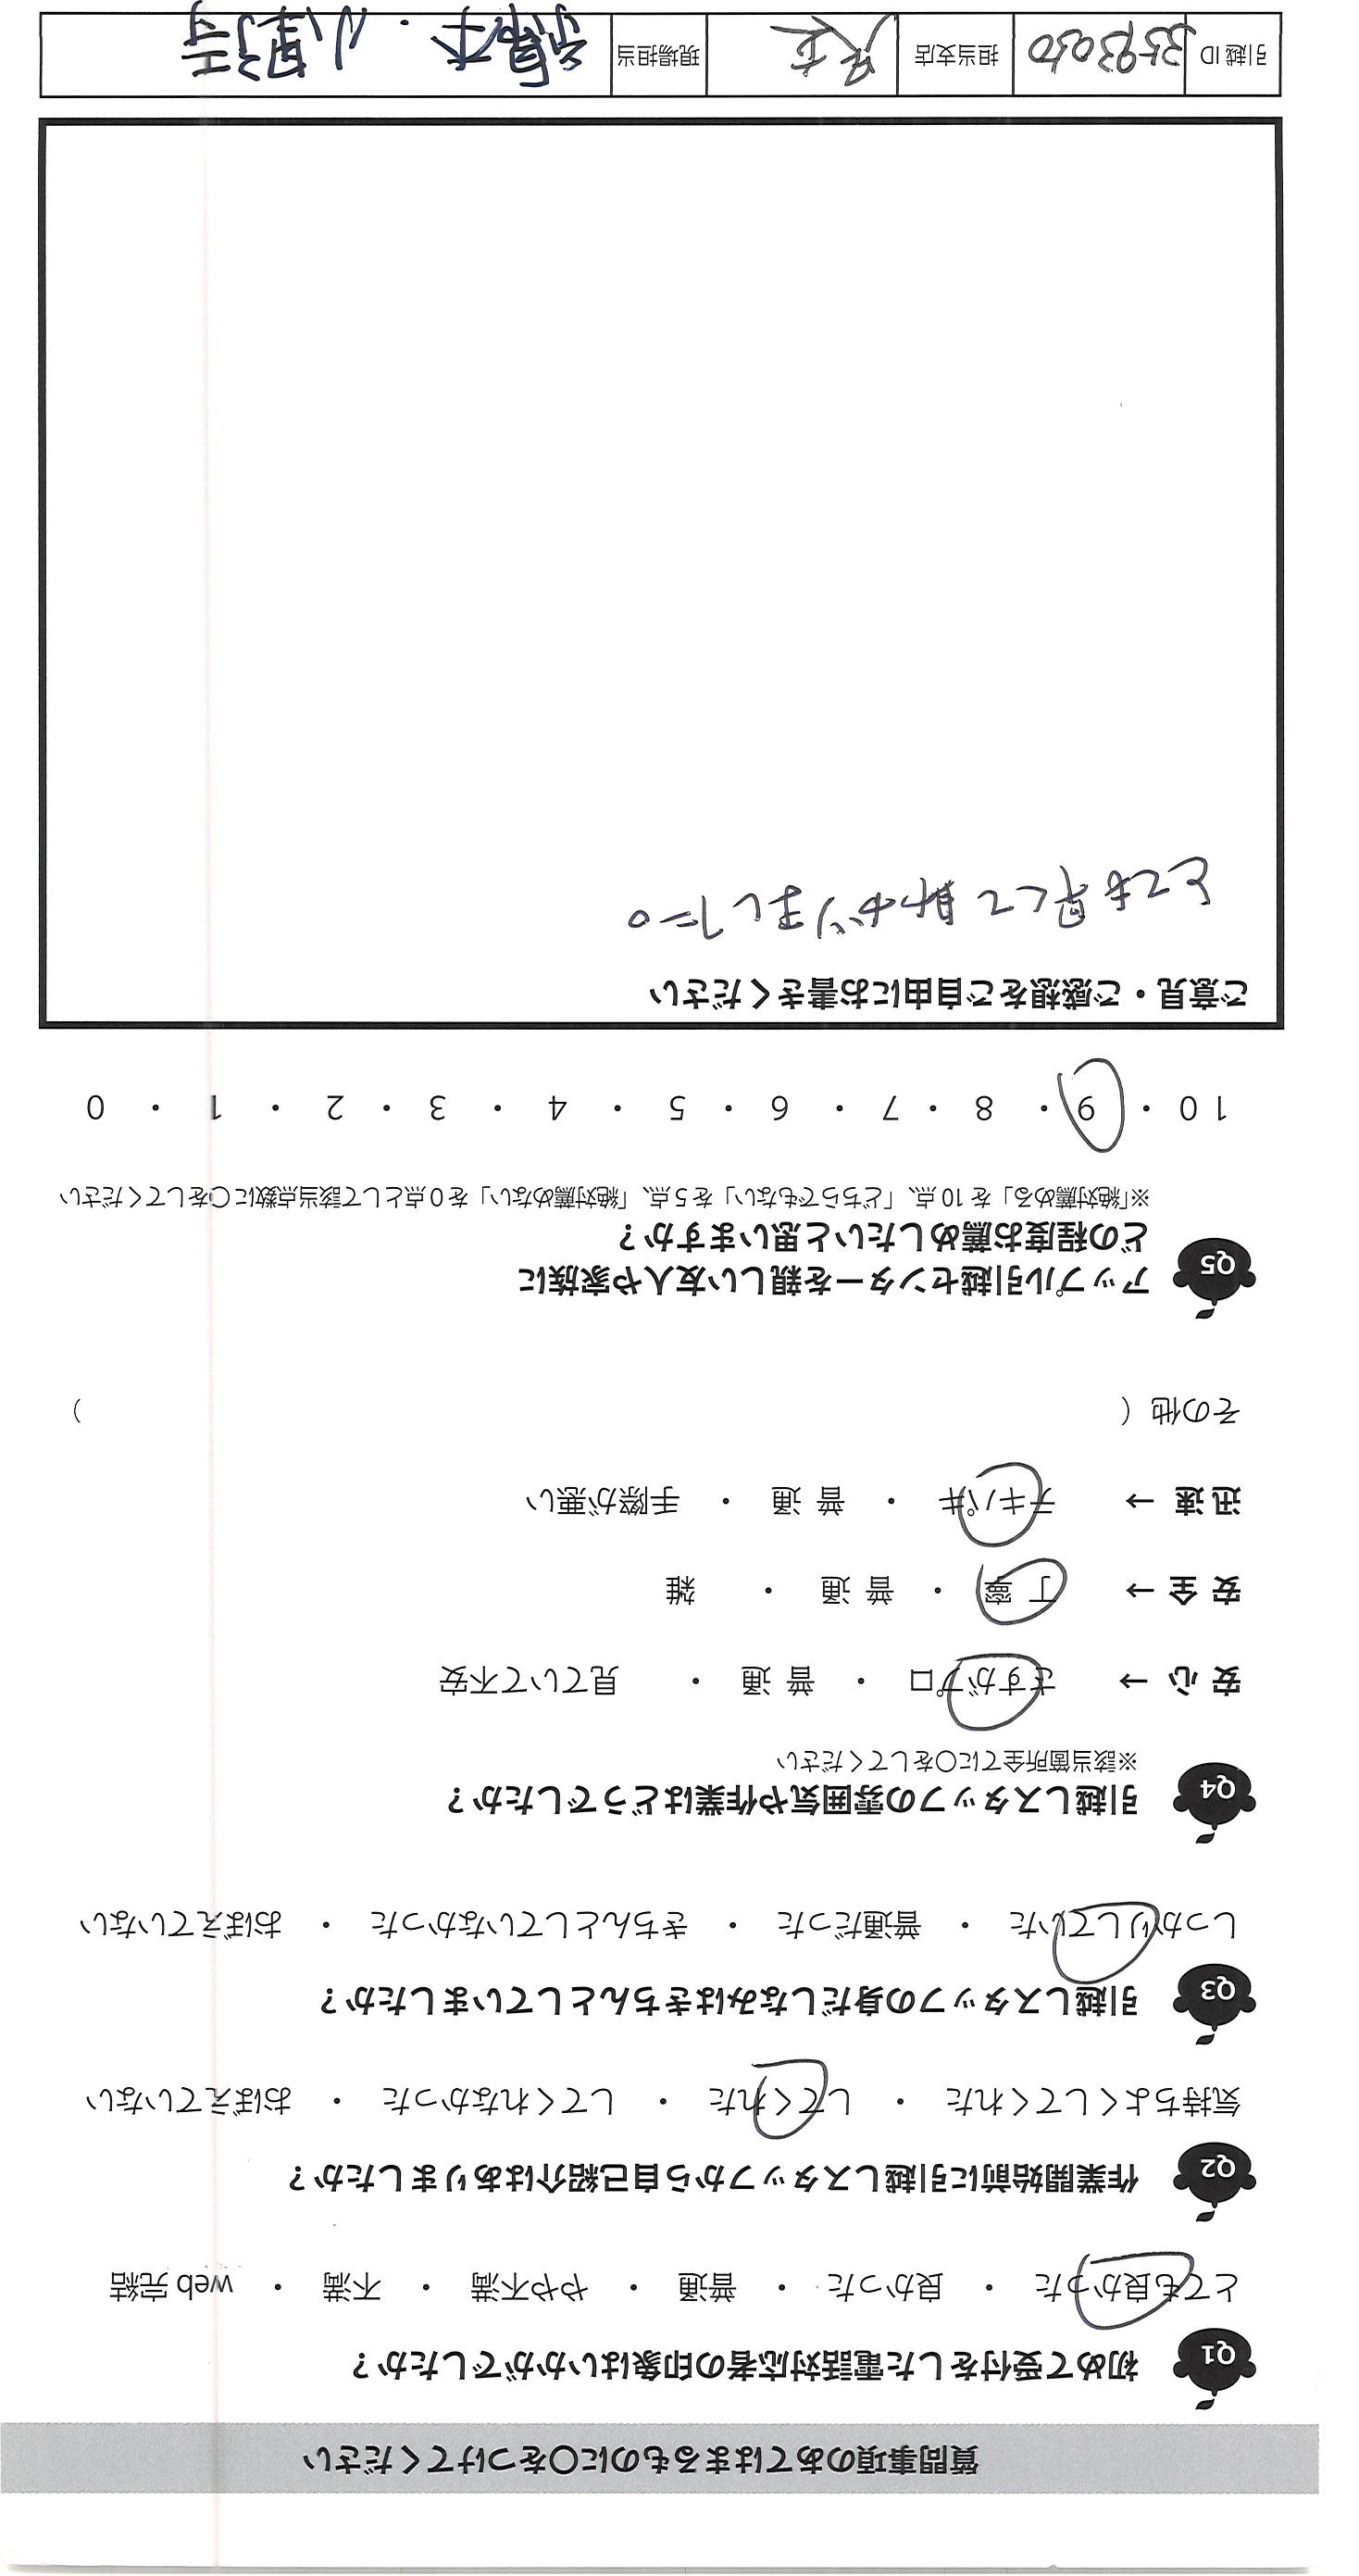 質問事項のあてはまるものに〇をつけてください
Q1 初めて受付をした電話対応者の印象はいかがでしたか？
とても良かった ・ 良かった ・ 普通 ・ やや不満 ・ 不満 ・ web 完結
Q2 作業開始前に引越しスタッフから自己紹介はありましたか？
気持ちよくしてくれた ・ してくれた ・ してくれなかった ・ おぼえていない
Q3 引越しスタッフの身だしなみはきちんとしていましたか？
しっかりしていた ・ 普通だった ・ きちんとしていなかった ・ おぼえていない
Q4 引越しスタッフの雰囲気や作業はどうでしたか？
※該当箇所全てに〇をしてください
安 心 → さすがプロ ・ 普 通 ・ 見ていて不安
安 全 → 丁 寧 ・ 普 通 ・ 雑
迅 速 → テキパキ ・ 普 通 ・ 手際が悪い
その他（ ）
Q5 アップル引越センターを親しい友人や家族に
どの程度お薦めしたいと思いますか？
※「絶対薦める」を 10 点、「どちらでもない」を 5 点、「絶対薦めない」を 0 点として該当点数に〇をしてください
10 ・ 9 ・ 8 ・ 7 ・ 6 ・ 5 ・ 4 ・ 3 ・ 2 ・ 1 ・ 0
ご意見・ご感想をご自由にお書きください
とても早くて助かりました。
引越 ID 3593050 担当支店 現場担当